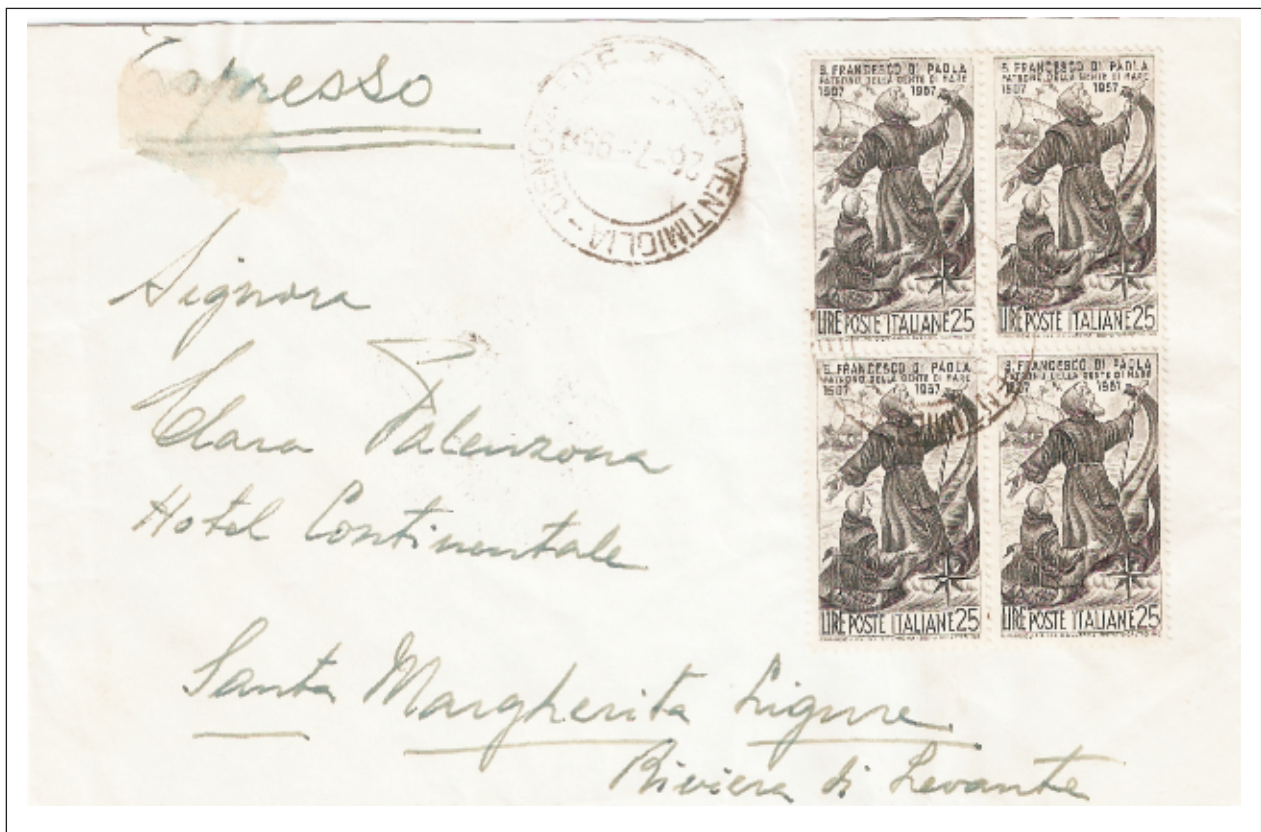 Espresso
AMB. VENTIMIGLIA - GENOVA
26-7-958
S. FRANCESCO DI PAOLA
PATRONO DELLA GENTE DI MARE
1507 1957
LIRE POSTE ITALIANE 25
S. FRANCESCO DI PAOLA
PATRONO DELLA GENTE DI MARE
1507 1957
LIRE POSTE ITALIANE 25
S. FRANCESCO DI PAOLA
PATRONO DELLA GENTE DI MARE
1507 1957
LIRE POSTE ITALIANE 25
S. FRANCESCO DI PAOLA
PATRONO DELLA GENTE DI MARE
1507 1957
LIRE POSTE ITALIANE 25
Signora
Clara Palenzona
Hotel Continentale
Santa Margherita Ligure
Riviera di Levante